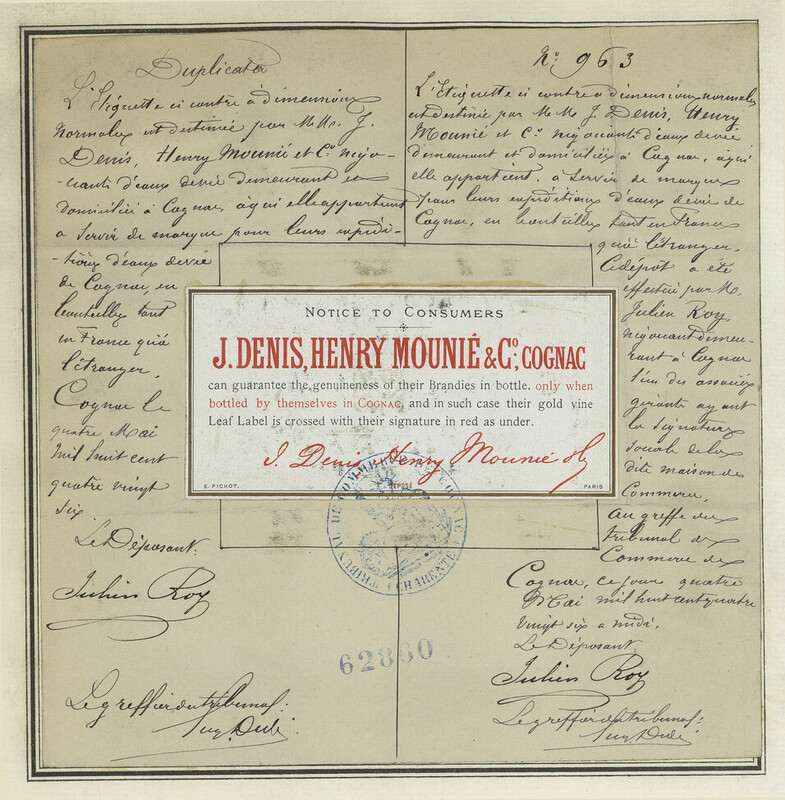 Duplicata
L'Etiquette ci contre à dimensions
normales est destinée par MM. J.
Denis, Henry Mounié et Co. négo-
ciants d'eaux de vie demeurant et
domiciliés à Cognac, à qui elle appartient
a servir de marque pour leurs expédi-
tions d'eaux de vie
de Cognac, en
bouteilles tant
en France qu'à
l'étranger.
Cognac le
quatre Mai
mil huit cent
quatre vingt
six.
Le Déposant:
Julien Roy
Le greffier du tribunal:
No. 963
L'Etiquette ci contre a dimensions normales
est destinée par MM J. Denis, Henry
Mounié et Co. négociants d'eaux de vie
demeurant et domiciliés à Cognac, à qui
elle appartient. a servir de marque
pour leurs expéditions d'eaux de vie de
Cognac, en bouteilles tant en France
qu'à l'étranger.
Ce dépôt a été
effectué par M.
Julien Roy
négociant demeu-
rant à Cognac
l'un des associés
gérants ayant
la signature
sociale de la
dite maison de
Commerce,
au greffe du
tribunal de
Commerce de
Cognac, ce jour quatre
Mai mil huit cent quatre
vingt six a midi.
Le Déposant
Julien Roy
Le greffier du tribunal:
NOTICE TO CONSUMERS
J. DENIS, HENRY MOUNIÉ & Co., COGNAC
can guarantee the genuineness of their Brandies in bottle, only when
bottled by themselves in COGNAC, and in such case their gold vine
Leaf Label is crossed with their signature in red as under.
J. Denis Henry Mounié & Co
E. PICHOT.
DÉPOSÉ
PARIS
TRIBUNAL DE COMMERCE DE COGNAC
(CHARENTE)
62860